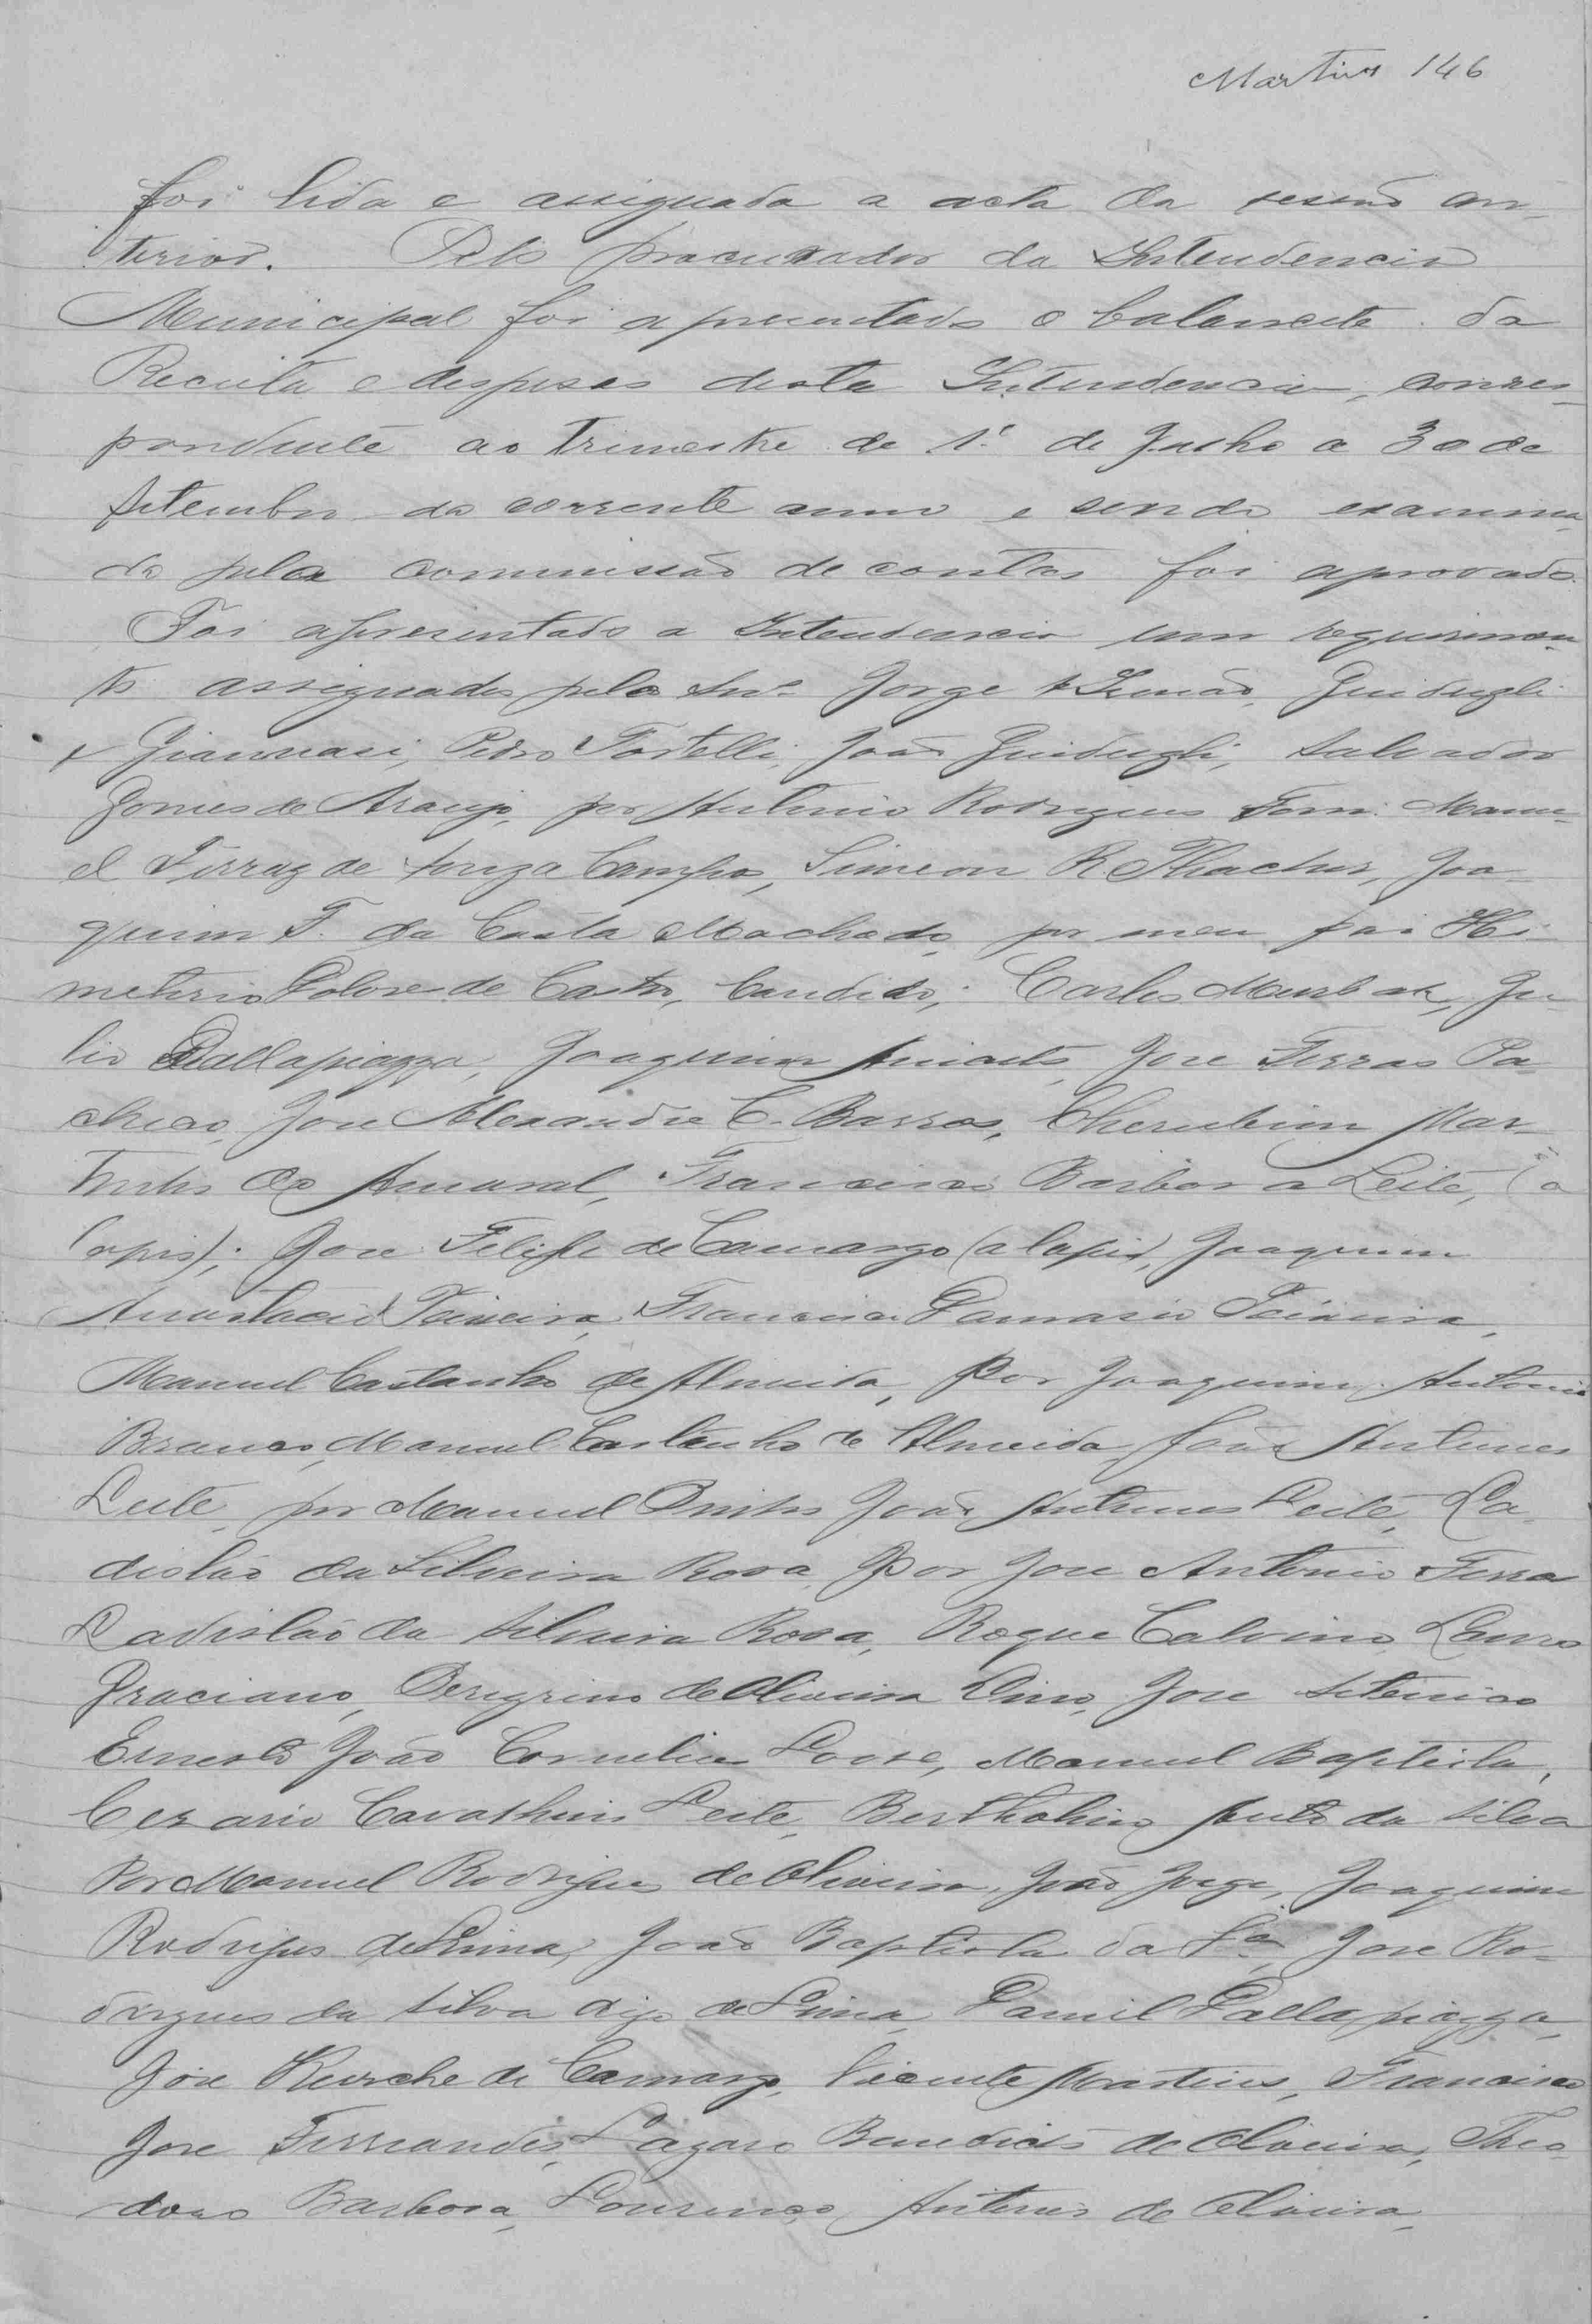 Martins 146
foi lida e assignada a acta da sessão an-
terior. Pelo procurador da Intendencia
Municipal foi apresentado o balancete da
Receita e despesas desta Intendencia, corres-
pondente ao trimestre de 1º de Julho a 30 de
Setembro do corrente anno e sendo examina-
do pela commissão de contas foi aprovado.
Foi apresentado a Intendencia um requerimen-
to assignado pelos Snrs Jorge & Irmão, Guidugli
& Giannasi, Pedro Tortelli, João Guidugli, Salvador
Gomes de Araujo, por Antonio Rodrigues Manu-
el Ferraz de Souza Campos, Simeon R. Thacher, Joa-
quim F. da Costa Machado, por meu pai Hi-
meterio de Castro, Candido; Carlos Ju-
lio Dallapiazza, Joaquim Aniceto, Jose Ferras Pa-
checo, Jose Alexandre C. Barros, Cherubim Mar-
tins do Amaral, Francisco Barbosa Leite, (a
lapis); Jose Felipe de Camargo (a lapis), Joaquim
Anastacio Teixeira, Francisco Damasio Teixeira,
Manuel Castanho de Almeida, Por Joaquim Antonio
Branco, Manuel Castanho de Almeida, João Antunes
Leite, por Manuel João Antunes Leite, La-
dislão da Silveira Rosa, por Jose Antonio Ferra
Ladislão da Silveira Rosa, Roque Calvino, Lauro
Graciano, Peregrino de Oliveira Jose
Ernesto João Cornelio Loose, Manuel Baptista,
Cezario Leite, Bertholino da Silva
Por Manuel Rodrigues de Oliveira, João Jorge, Joaquim
Rodrigues de Lima, João Baptista da Sª, Jose Ro-
drigues da Silva digo de Lima, Daniel Dallapiazza,
Jose de Camargo, Vicente Martins, Francisco
Jose Fernandes, Lazaro Benedicto de Oliveira, Theo-
doro Barbosa, Lourenço Antunes de Oliveira,